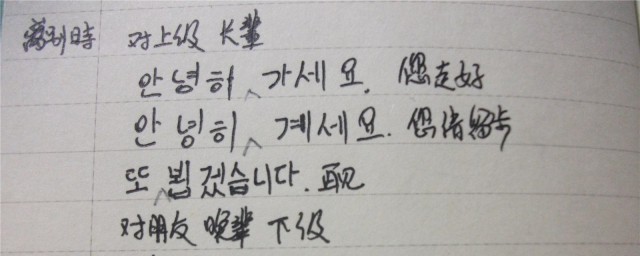 离别时 对上级 长辈
안녕히 가세요. 您走好
안녕히 계세요. 您请留步
또 뵙겠습니다. 再见
对朋友 晚辈 下级